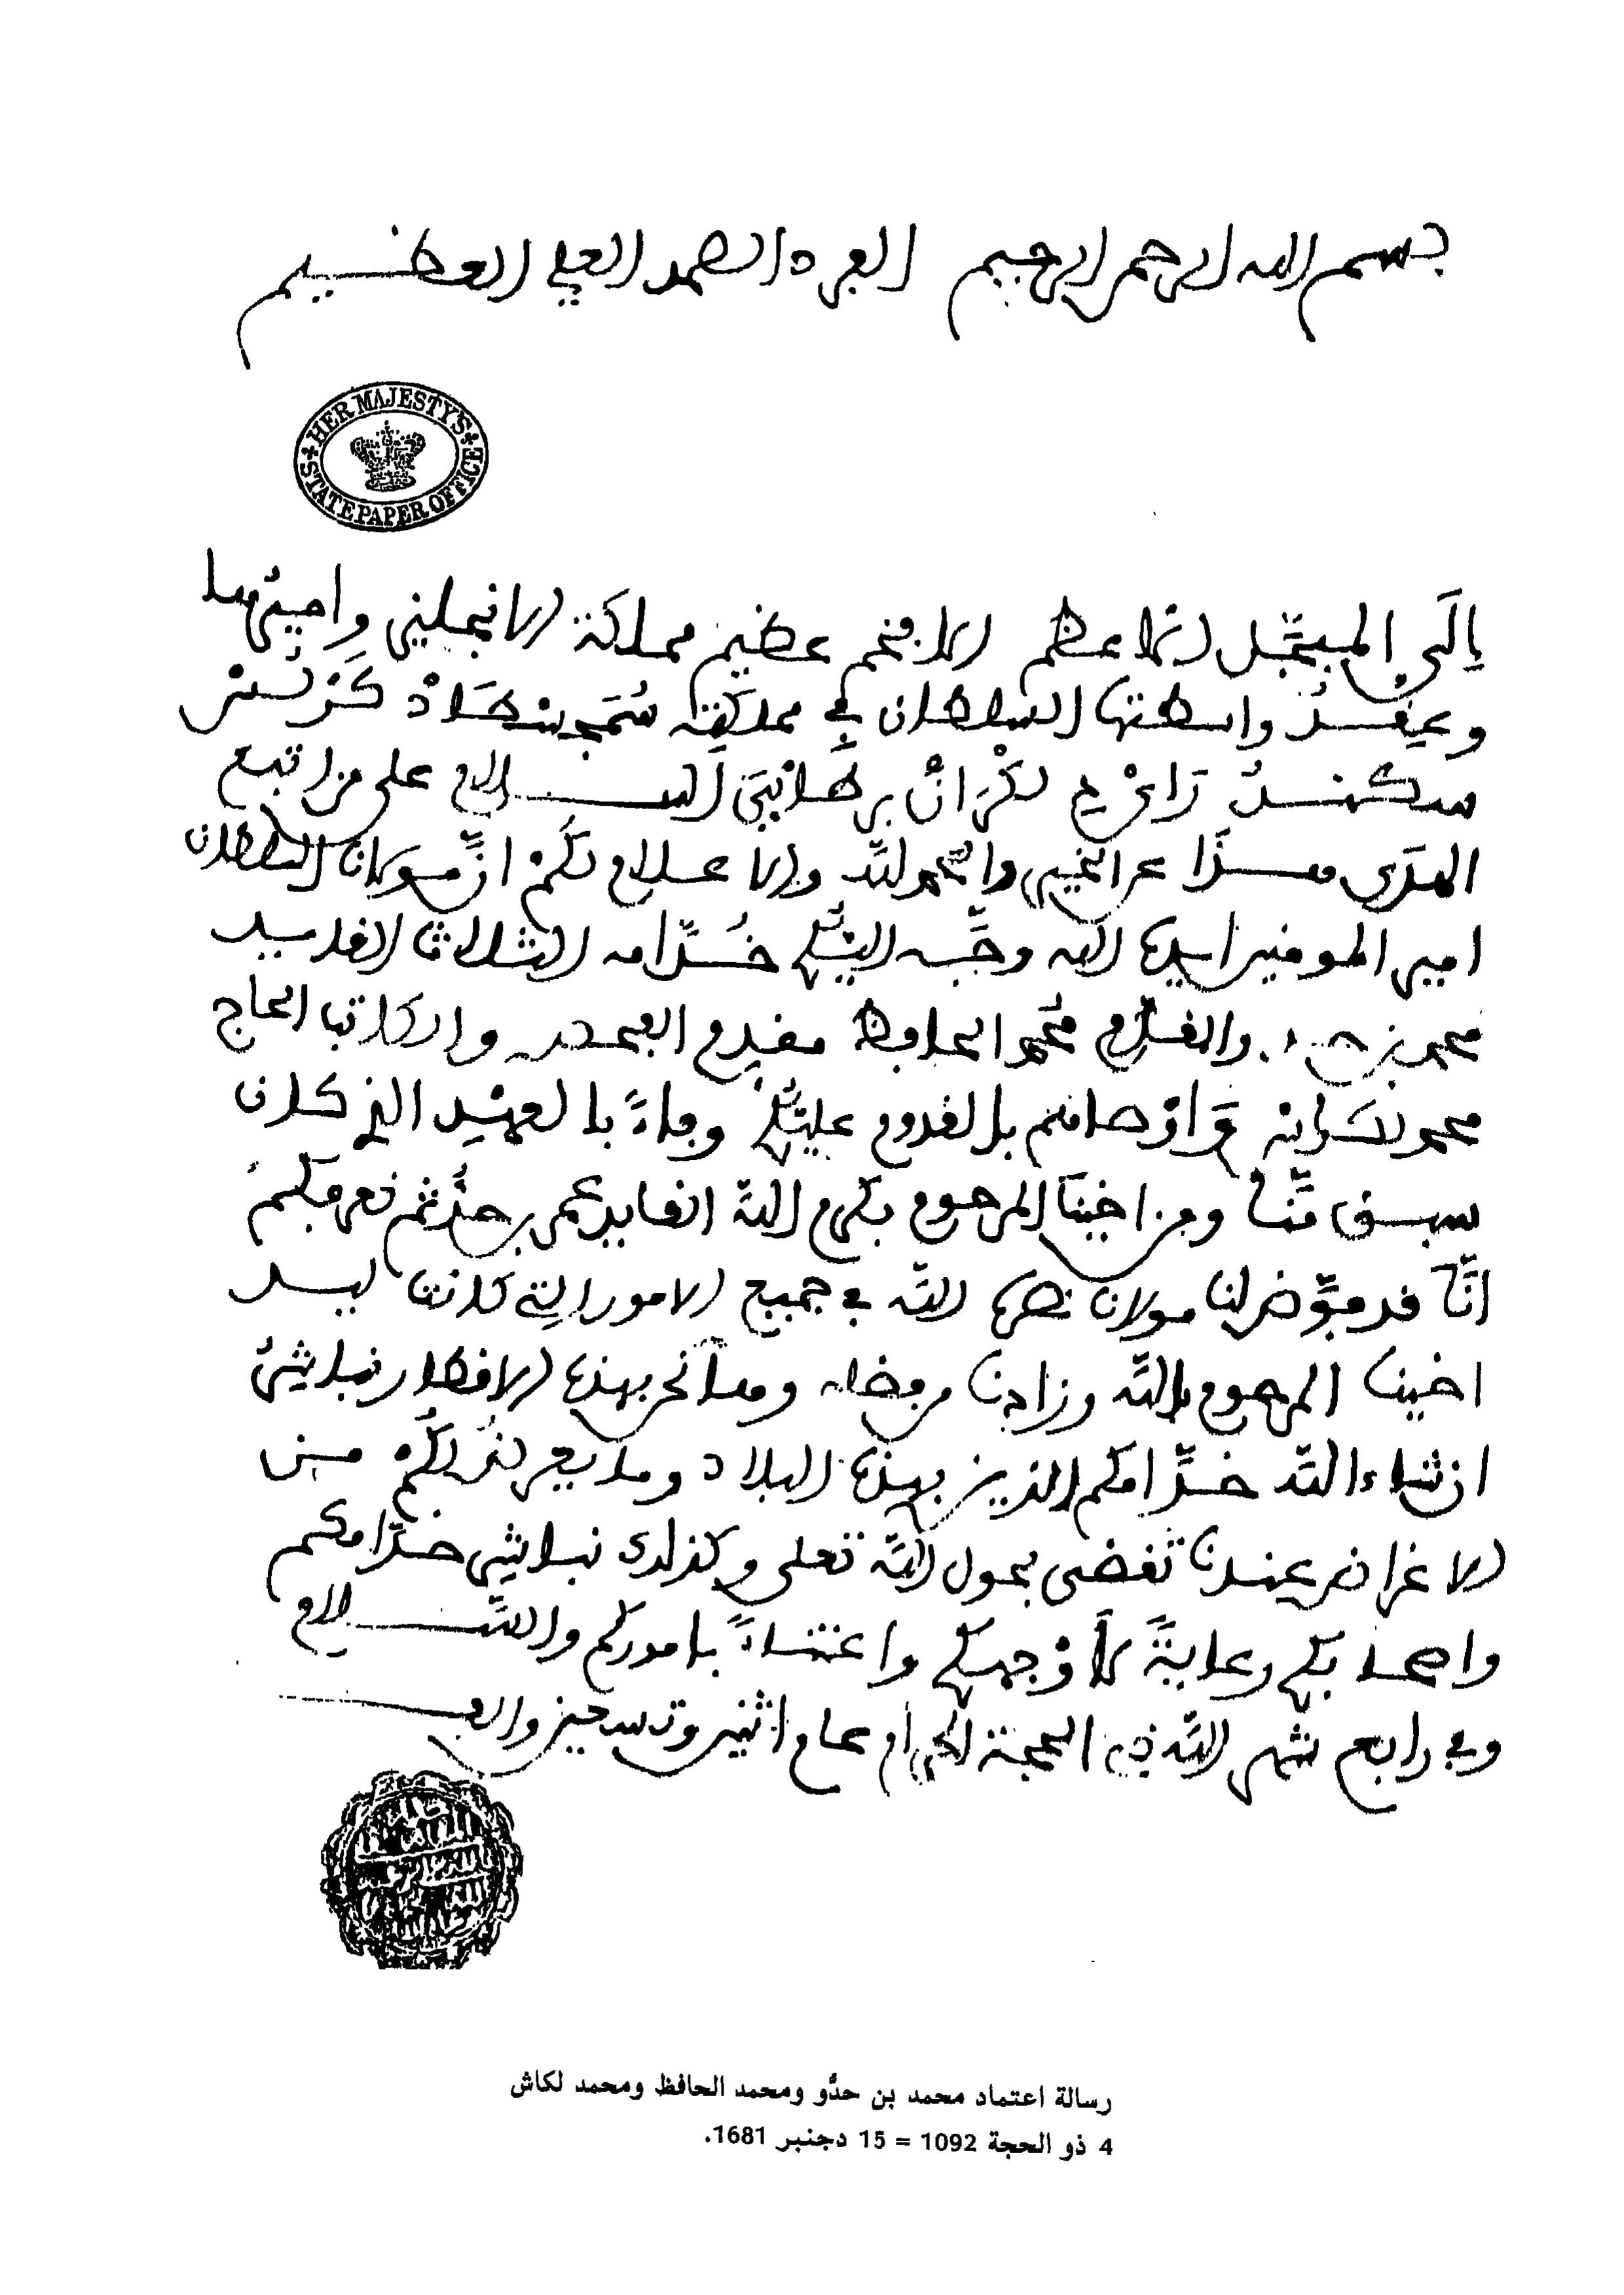 بسم الله الرحمن الرحيم الفرد الصمد العلي العظيم
HER MAJESTY'S STATE PAPER OFFICE
إلى المبجل الاعظم الافخم عظيم مملكة الانجليز وامينها
وعقد واسطتها السلطان في مملكته كرلس
السلام على من اتبع
الهدى هذا عن الخير والحمد لله ولا علام لكم ان مولانا السلطان
امير المومنين ايده الله وجه اليكم خدامه الثلاثة القايد
محمد بن حدو والمقدم محمد الحافظ مقدم والكاتب الحاج
محمد واوصاهم بالقدوم عليكم وفاء بالعهد الذي كان
سبق منا ومن اخينا المرحوم بكرم الله القايد عمر بن حدو ثم نعرفكم
انا قد فوض لنا مولانا نصره الله في جميع الامور التي كانت ليد
اخينا المرحوم بالله وزادنا من فضله وها نحن بهذه الاقطار نباشر
ان شاء الله خدامكم الذين بهذه البلاد وما يعرض لكم من
الاغراض عندنا تقضى بحول الله تعلى وكذلك نباشر خدامكم
واصحابكم رعاية لاوجهكم واعتناء باموركم والسلام
وفي رابع شهر الله ذي الحجة الحرام عام اثنين وتسعين والف
رسالة اعتماد محمد بن حدّو ومحمد الحافظ ومحمد لكاش
4 ذو الحجة 1092 = 15 دجنبر 1681.